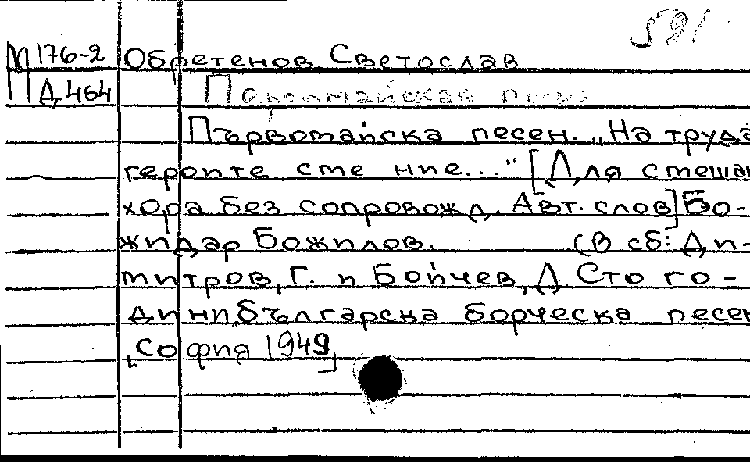 591
М 176-2 Обретенов Светослав
Д 464 Первомайская песнь
Първомайска песен. „На труда
героите сме ние..." [Для смешан
хора без сопровожд. Авт. слов] Бо-
жидар Божилов. (В сб: Ди-
митров, Г. и Бойчев, Д. Сто го-
дини българска борческа песен
[София 1949]